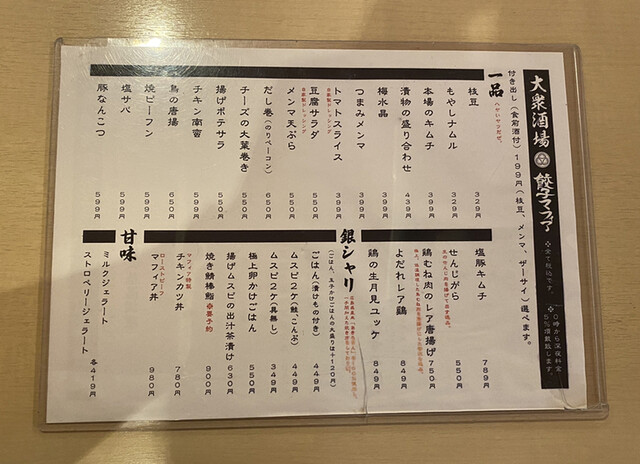 大衆酒場 餃子マフィア
※全て税込です。
※0時から深夜料金
5%頂戴致します。
付き出し(食前酒付)199円(枝豆、メンマ、ザーサイ)選べます。
一品
ハヤいヤツだぜ。
枝豆 329円
もやしナムル 329円
本場のキムチ 399円
漬物の盛り合わせ 439円
梅水晶 399円
つまみメンマ 399円
トマトスライス 399円
自家製ドレッシング
豆腐サラダ 550円
自家製ドレッシング
メンマ天ぷら 550円
だし巻(のりベーコン) 650円
チーズの大葉巻き 550円
揚げポテサラ 599円
チキン南蛮 550円
鳥の唐揚 650円
焼ビーフン 599円
塩サバ 599円
豚なんこつ 599円
塩豚キムチ 789円
せんじがら 550円
鶏むね肉のレア唐揚げ 750円
よだれレア鶏 849円
鶏の生月見ユッケ 849円
銀シャリ
(ごはん、玉子かけごはんの大盛りは+120円)
ごはん(漬けもの付き) 449円
ムスビ2ケ(鮭、こんぶ) 449円
ムスビ2ケ(具無し) 349円
極上卵かけごはん 550円
揚げムスビの出汁茶漬け 630円
焼き鯖棒鮨 ※要予約 900円
マフィア特製
チキンカツ丼 780円
ローストビーフ
マフィア丼 980円
甘味
ミルクジェラート
ストロベリージェラート 各419円